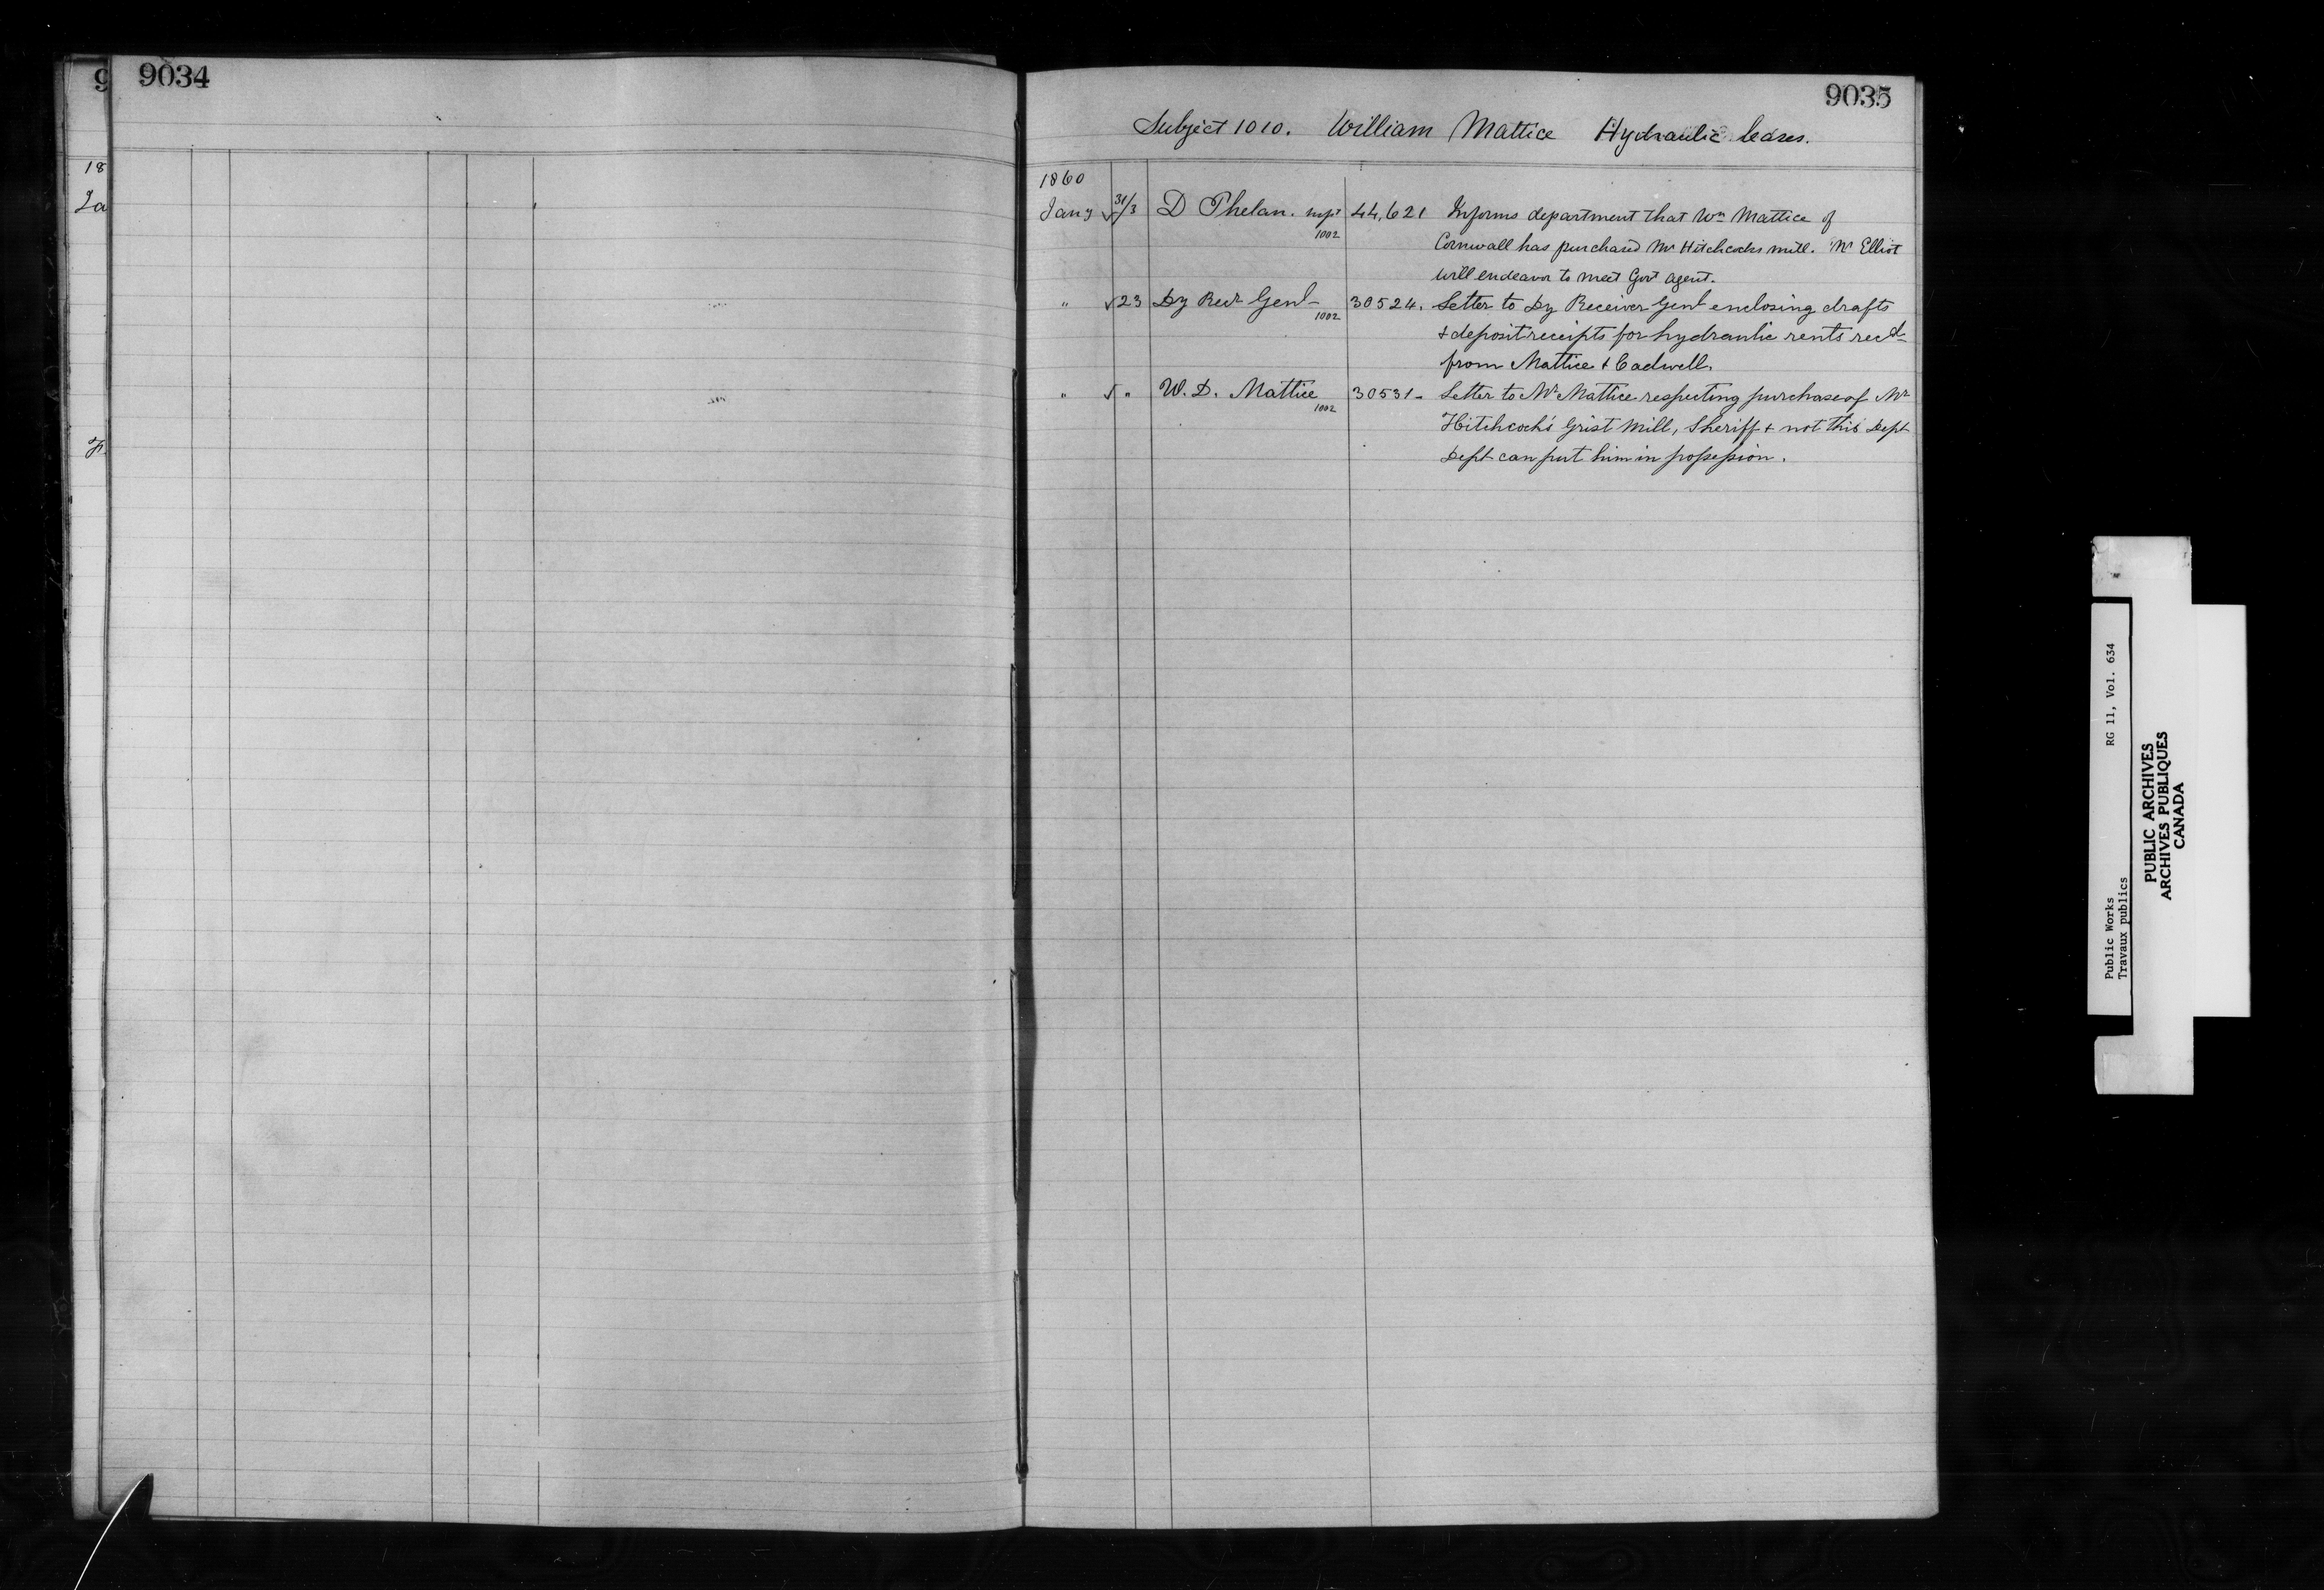 9034
18
Ja
F
9035
Subject 1010. William Mattice Hydraulic leases.
1860
Jany √ 31/3 D Phelan. supt 44,621 Informs department that Wm Mattice of
1002 Cornwall has purchased Mr Hitchcocks mill. Mr Elliot
will endeavor to meet Govt agent.
" √ 23 Dy Recr Genl - 30524. Letter to Dy Receiver Genl enclosing drafts
1002 & deposit receipts for hydraulic rents recd
from Mattice & Cadwell.
" √ " W. D. Mattice 30531 - Letter to Mr Mattice respecting purchase of Mr
1002 Hitchcock's Grist Mill, Sheriff & not this Dept
Dept can put him in possession.
Public Works RG 11, Vol. 634
Travaux publics
PUBLIC ARCHIVES
ARCHIVES PUBLIQUES
CANADA